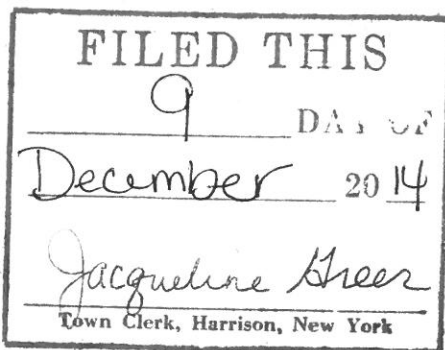 FILED THIS
9 DAY OF
December 20 14
Jacqueline Greer
Town Clerk, Harrison, New York